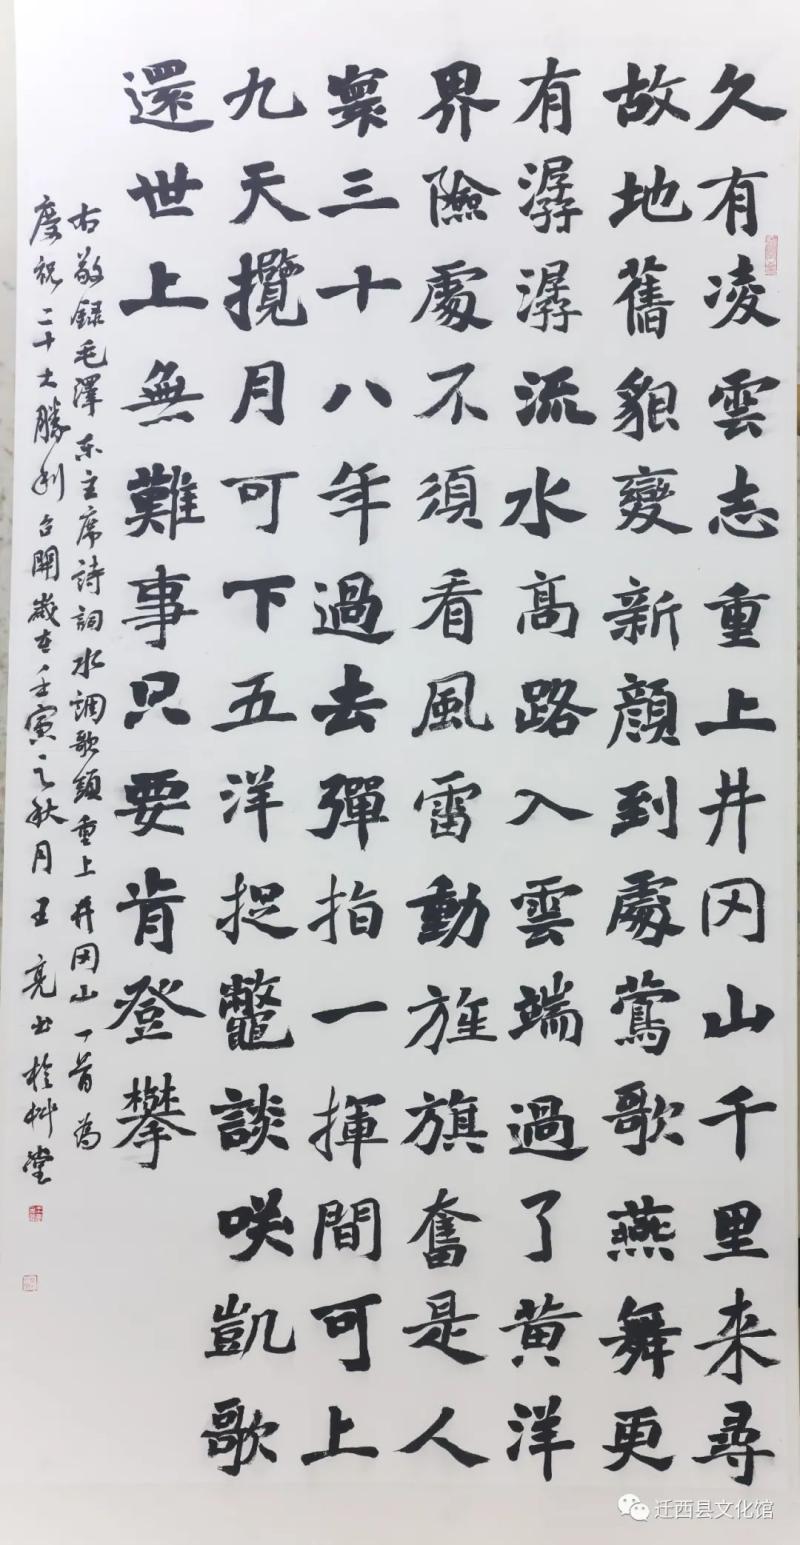 久有凌雲志重上井冈山千里来尋
故地舊貌變新顔到處鶯歌燕舞更
有潺潺流水高路入雲端過了黄洋
界險處不須看風雷動旌旗奮是人
寰三十八年過去彈指一揮間可上
九天攬月可下五洋捉鼈談咲凱歌
還世上無難事只要肯登攀
右敬録毛澤东主席詩詞水調歌頭重上井冈山一首為
慶祝二十大勝利召開歲在壬寅之秋月王亮书於艸堂
迁西县文化馆